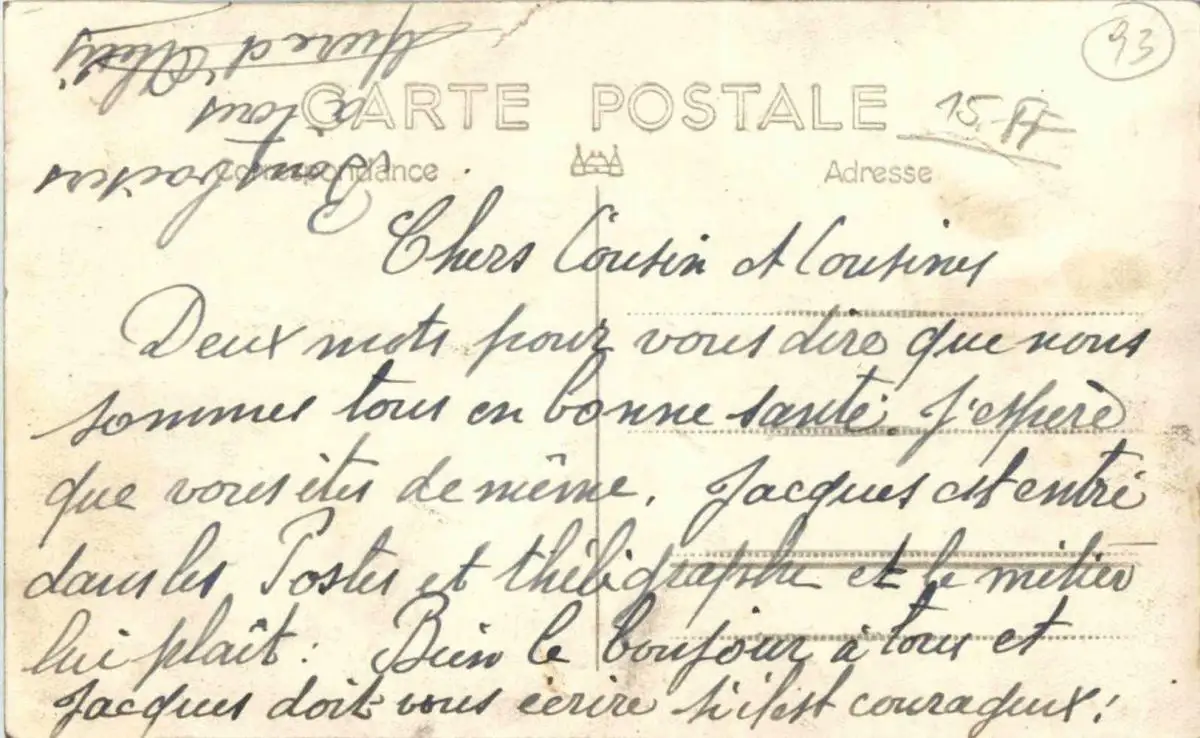 93
CARTE POSTALE
15 FF
Correspondance
Adresse
Chers Cousin et Cousines
Deux mots pour vous dire que nous
sommes tous en bonne santé. J'espère
que vous êtes de même. Jacques est entré
dans les Postes et thélégraphe et le métier
lui plaît. Bien le bonjour à tous et
Jacques doit vous écrire s'il est courageux!
Bons baisers
à tous